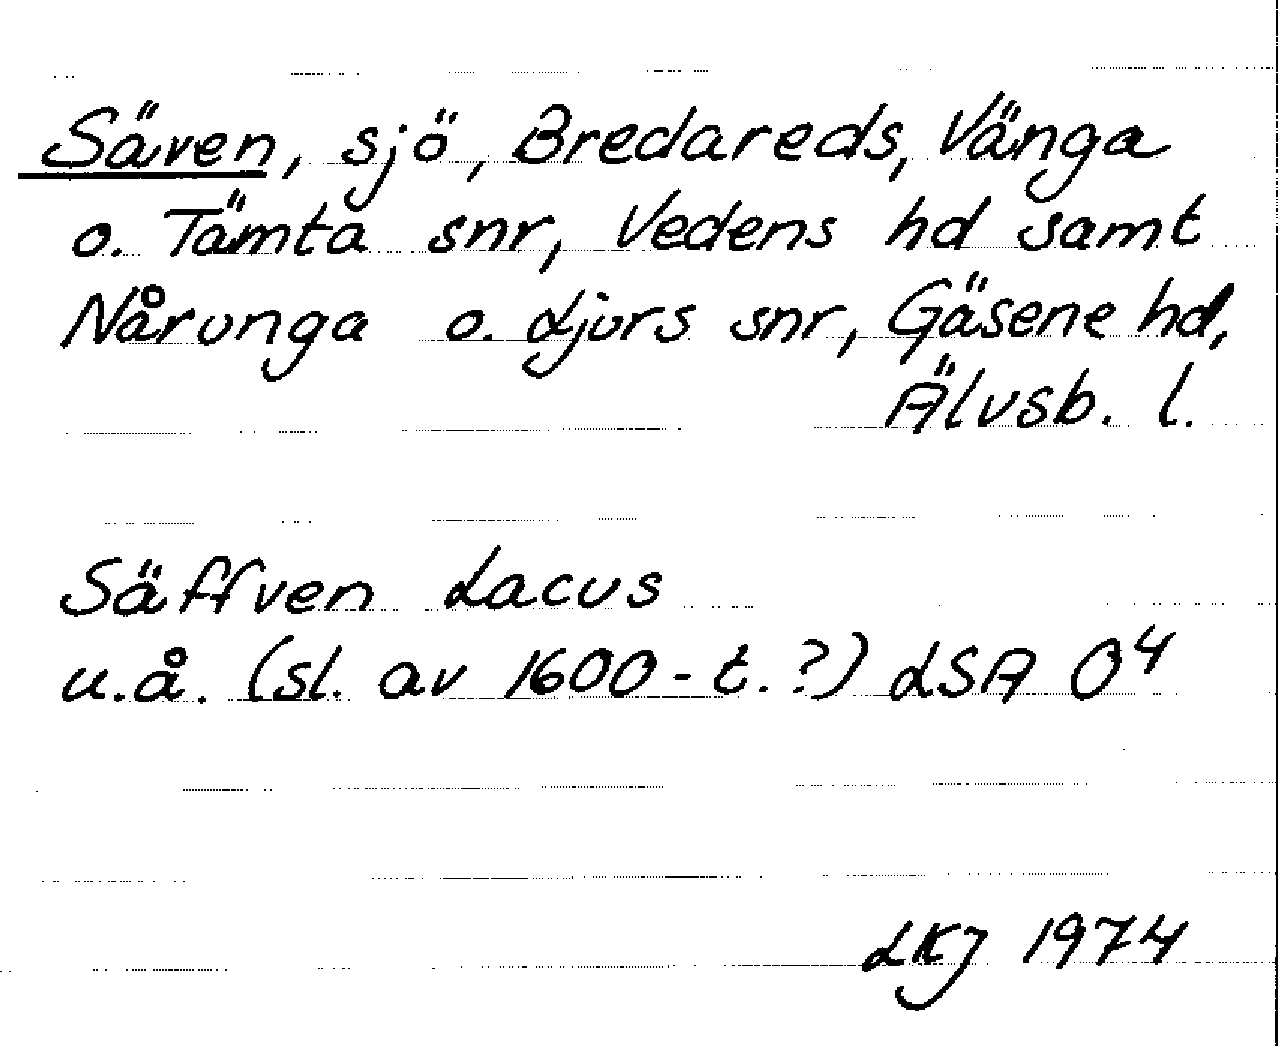 Säven, sjö, Bredareds, Vänga
o. Tämta snr, Vedens hd samt
Nårunga o. Ljurs snr, Gäsene hd,
Älvsb. l.
Säffven Lacus
u.å. (sl. av 1600-t.?) LSA O⁴
LKJ 1974